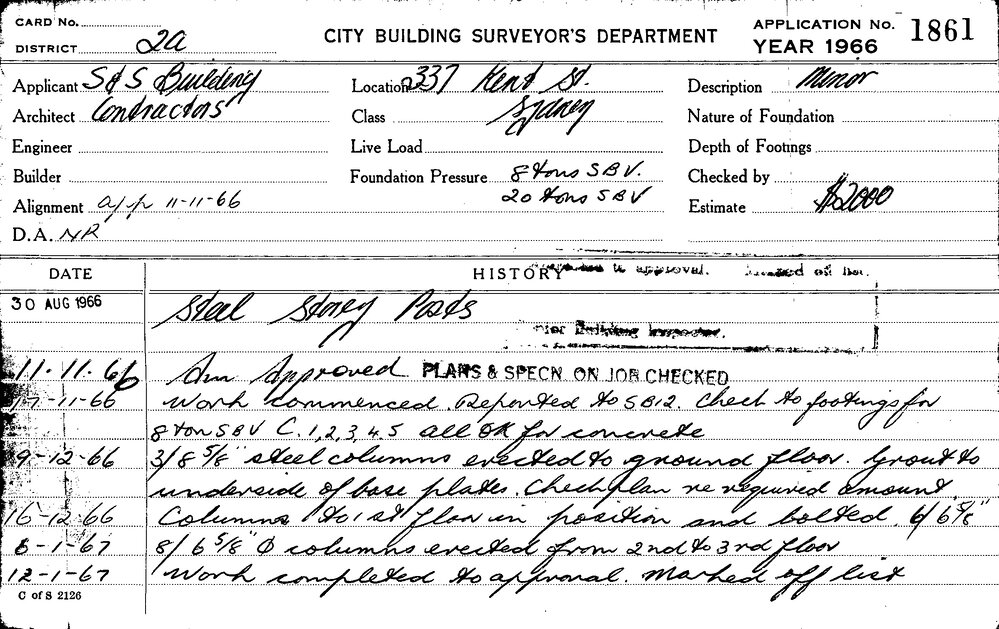 CARD No.
DISTRICT 2a
CITY BUILDING SURVEYOR'S DEPARTMENT
APPLICATION No. 1861
YEAR 1966
Applicant S & S Building
Location 337 Kent St.
Description Minor
Architect Contractors
Class Sydney
Nature of Foundation
Engineer
Live Load
Depth of Footings
Builder
Foundation Pressure 8 tons SBV.
Checked by
Alignment app 11-11-66
20 tons SBV
Estimate $2000
D.A. NR
DATE
HISTORY
to approval. off list.
30 AUG 1966 Steel Storey Posts
Building Inspector.
11.11.66 Approved PLANS & SPECN. ON JOB CHECKED
17-11-66 Work commenced. Reported to SB12. Check to footings for
8 ton SBV C. 1, 2, 3, 4. 5 all OK for concrete
9-12-66 3/8 5/8" steel columns erected to ground floor. Grout to
underside of base plates. Check plan re required amount
16-12-66 Columns to 1st floor in position and bolted. 6/6 5/8"
6-1-67 8/ 6 5/8" Ø columns erected from 2nd to 3rd floor
12-1-67 Work completed to approval. Marked off list
C of S 2126